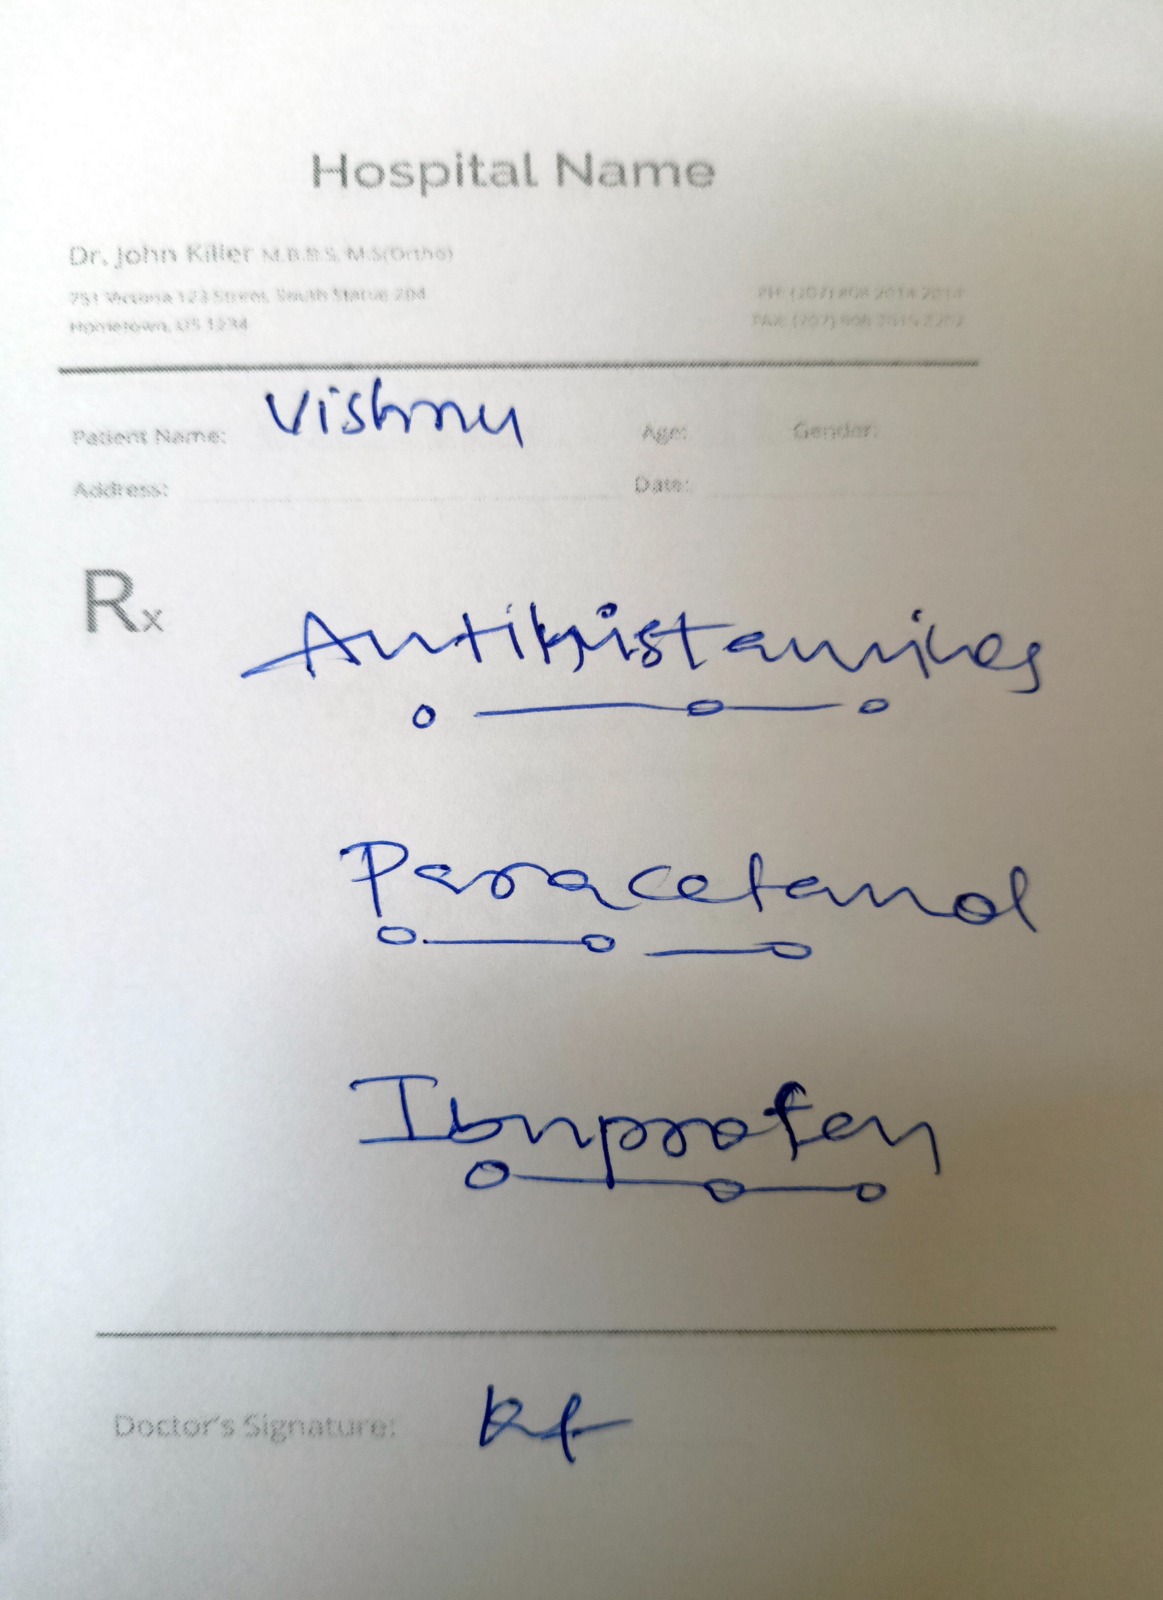 Hospital Name
Dr. John Killer M.B.B.S, M.S(Ortho)
751 Victoria 123 Street, South Statue 204
Hometown, US 1234
Patient Name: Vishnu Age: Gender:
Address: Date:
Rx
Antihistamines
o — o — o
Paracetamol
o — o — o
Ibuprofen
o — o — o
Doctor's Signature: